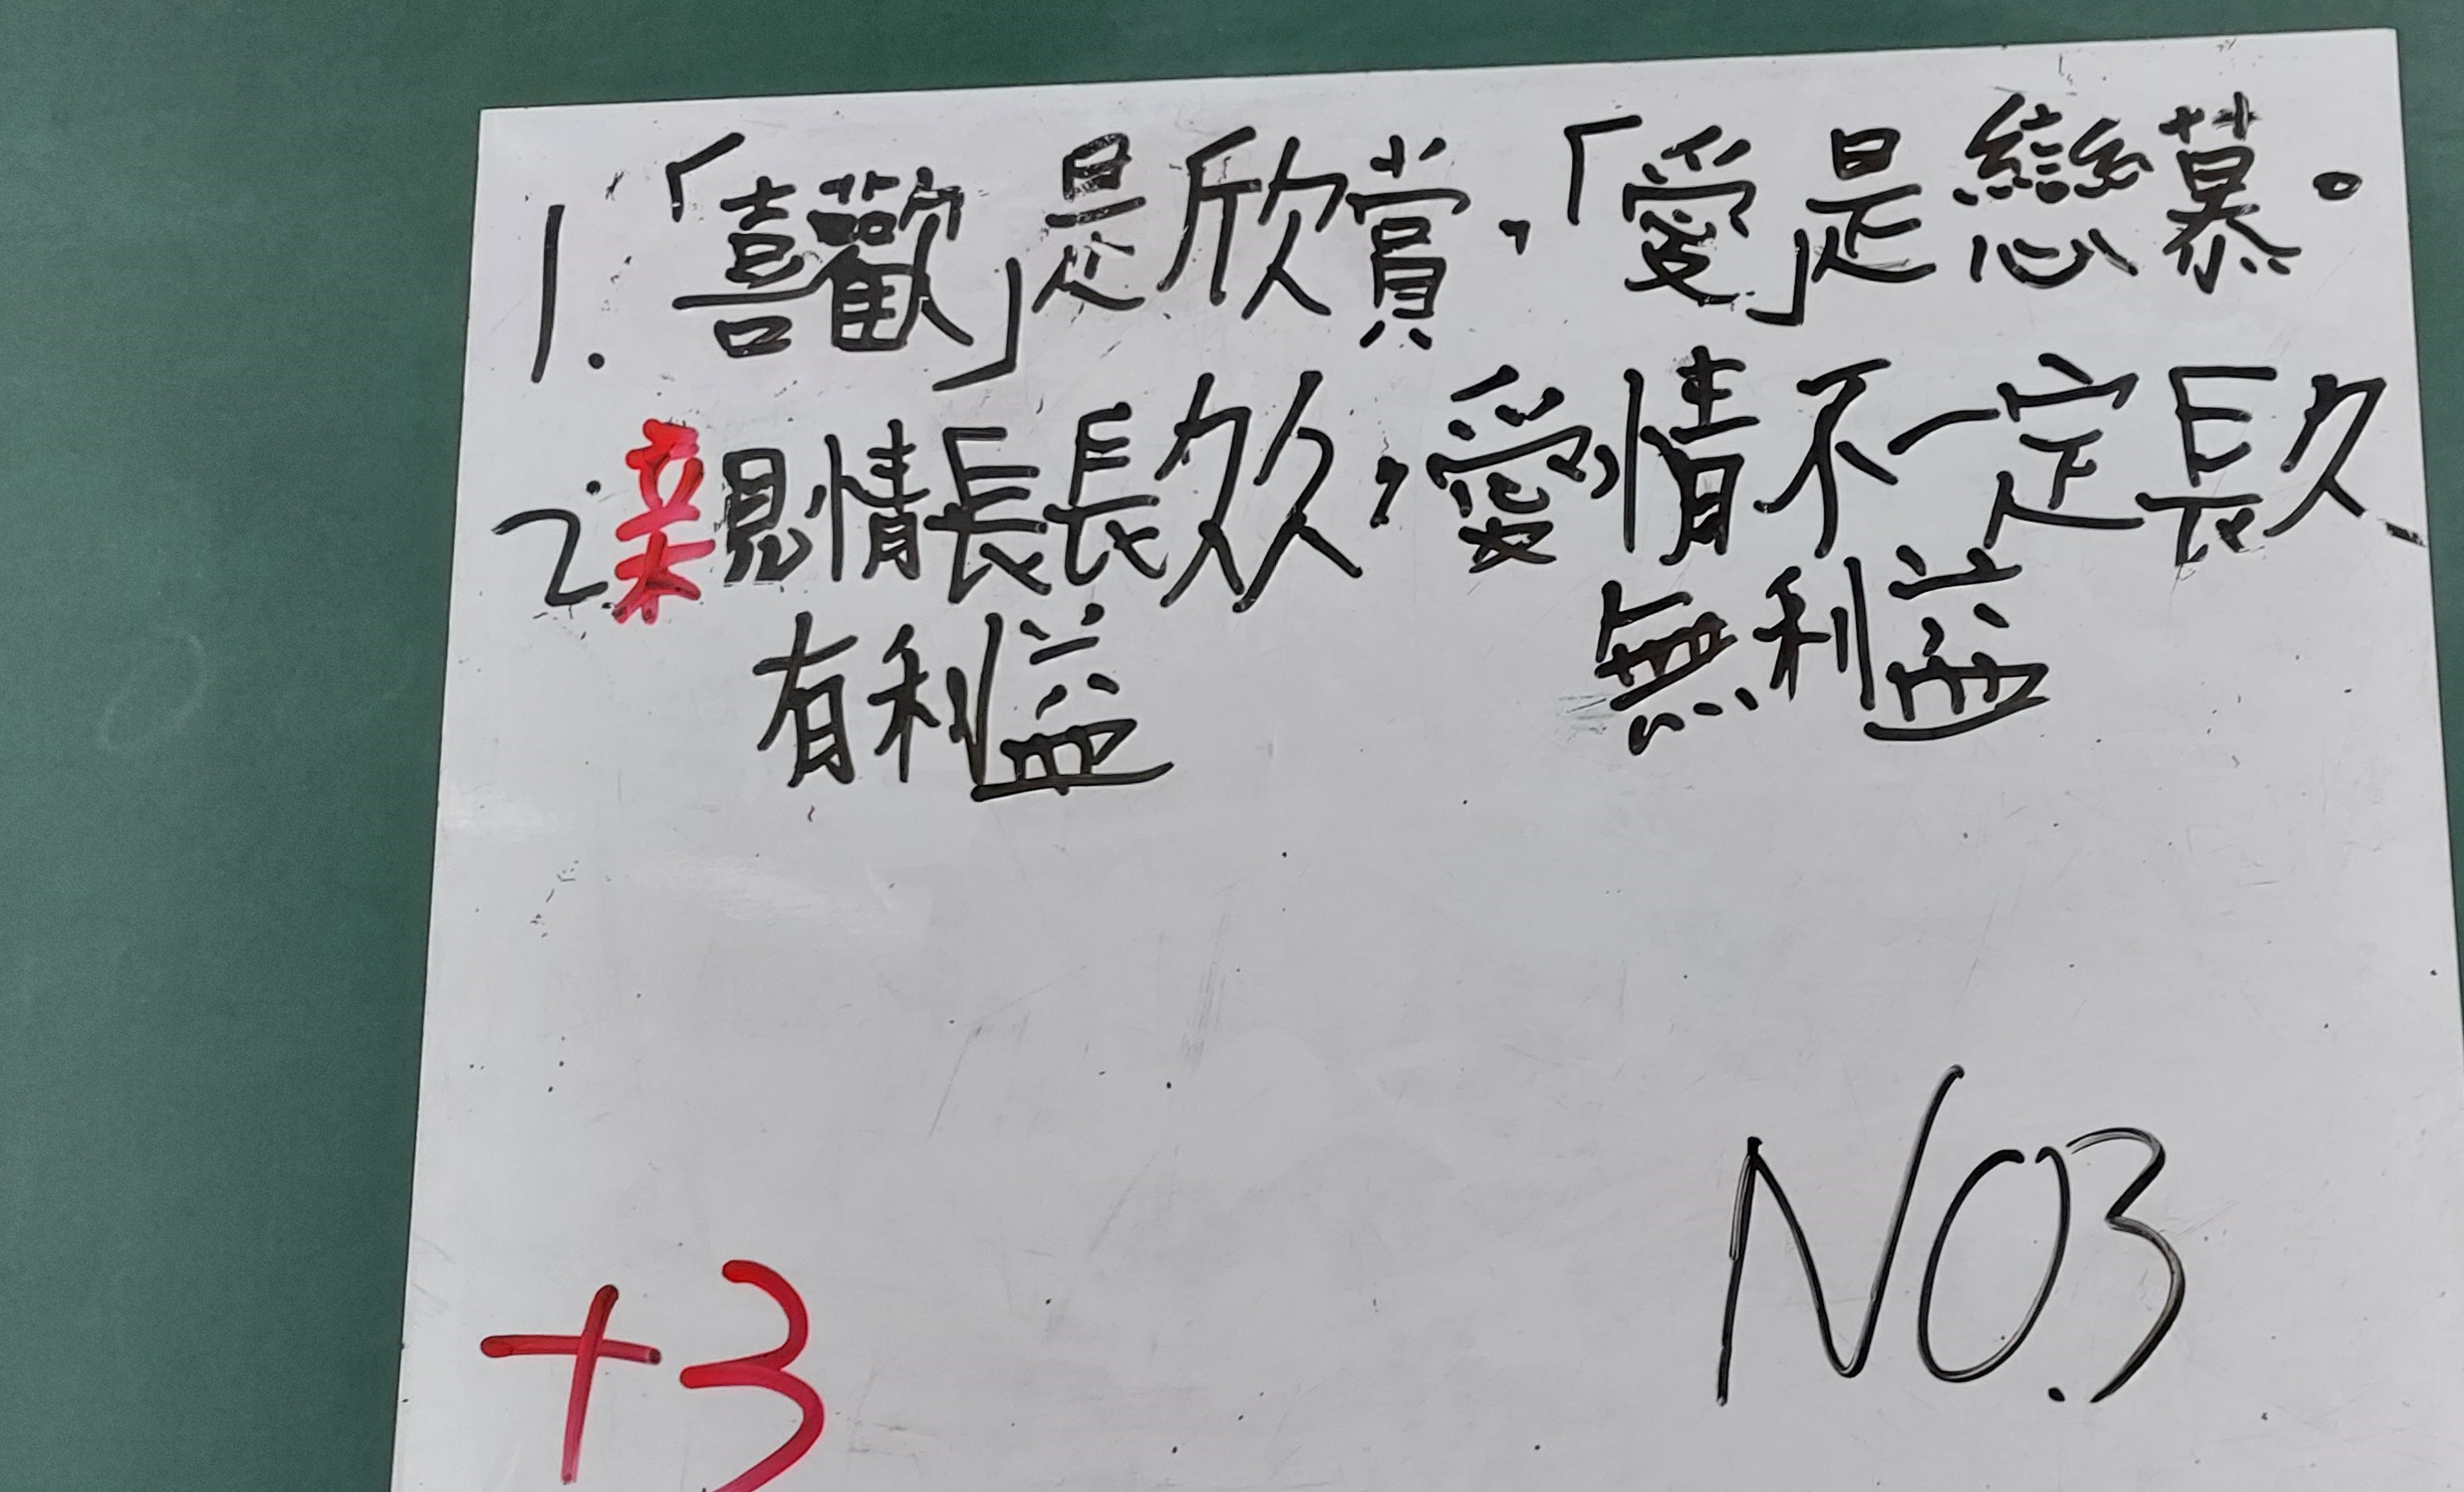 1.「喜歡」是欣賞,「愛」是戀慕。
2.親情長長久久,愛情不一定長久
有利益 無利益
NO.3
+3